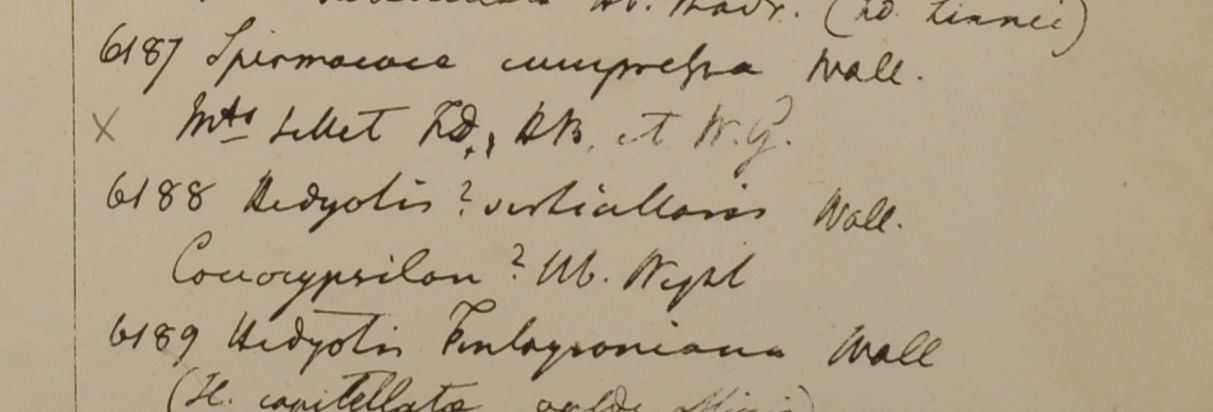 Hb. Madr. (Hb. Linnei)
6187 Spermacoce compressa Wall.
x Mts Sillet FD, HB, et W.G.
6188 Hedyotis ? verticillaris Wall.
Coccocypsilon ? Hb. Wight
6189 Hedyotis Finlaysoniana Wall
(H. capitellata valde affinis)